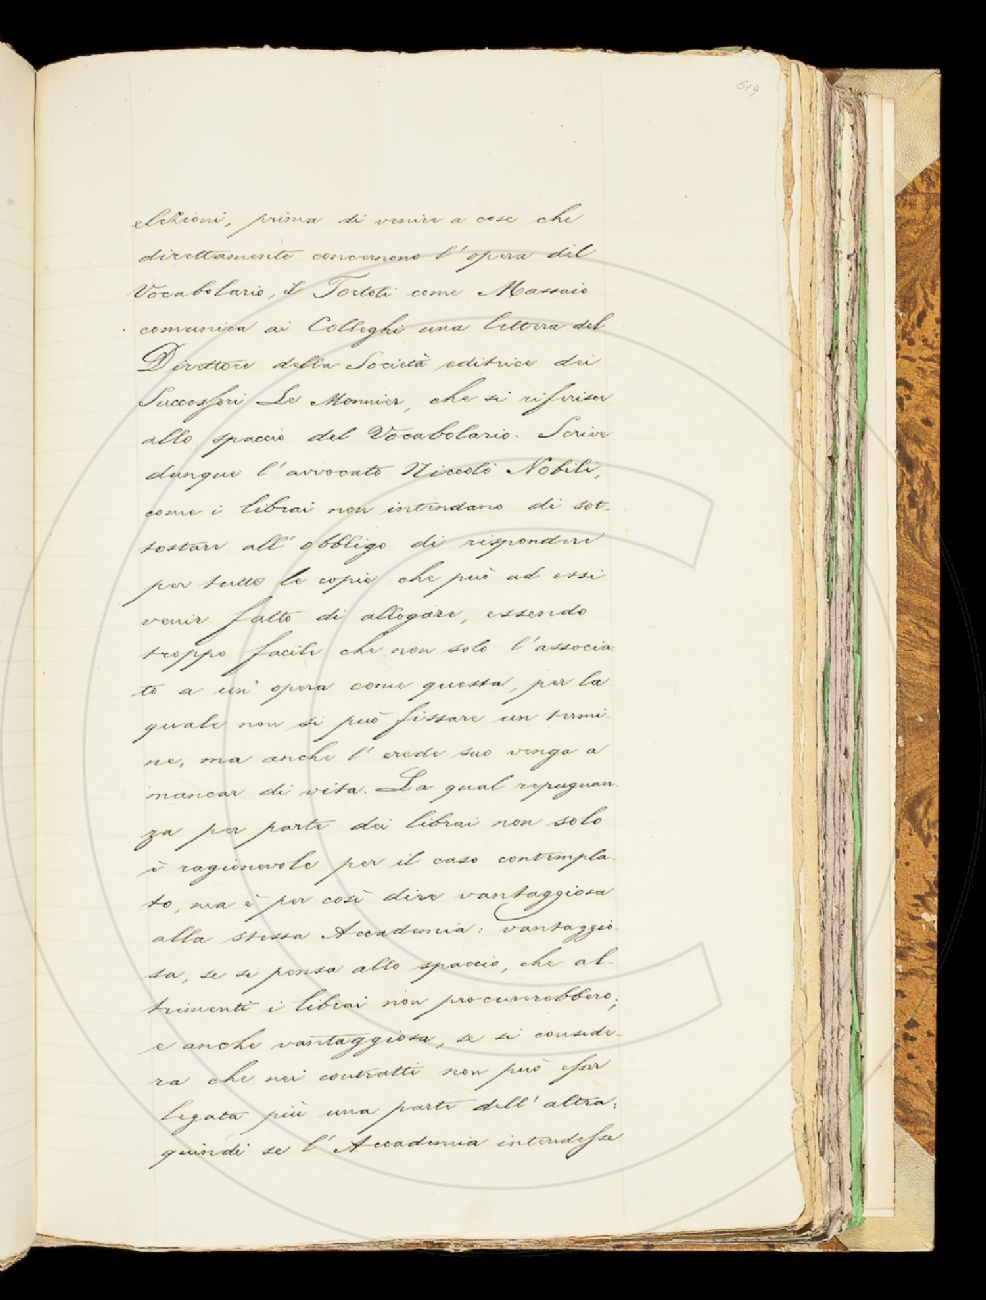 619
elezioni, prima di venire a cose che
direttamente concernono l'opera del
Vocabolario, il Tortoli come Massaio
comunica ai Colleghi una lettera del
Direttore della Società editrice dei
Successori Le Monnier, che si riferisce
allo spaccio del Vocabolario. Scrive
dunque l'avvocato Niccolò Nobili,
come i librai non intendano di sot-
tostare all'obbligo di rispondere
per tutte le copie che può ad essi
venir fatto di allogare, essendo
troppo facile che non solo l'associa
to a un'opera come questa, per la
quale non si può fissare un termi-
ne, ma anche l'erede suo venga a
mancar di vita. La qual repugnan-
za per parte dei librai non solo
è ragionevole per il caso contempla-
to, ma è per così dire vantaggiosa
alla stessa Accademia: vantaggio-
sa, se si pensa allo spaccio, che al-
trimenti i librai non procurerebbero;
e anche vantaggiosa, se si conside-
ra che nei contratti non può esser
legata più una parte dell'altra:
quindi se l'Accademia intendesse